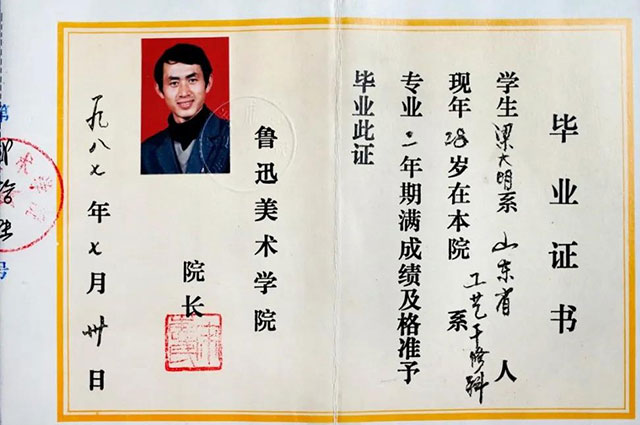 毕业证书
学生梁大明系山东省 人
现年28岁在本院 系
工艺干修科
专业二年期满成绩及格准予
毕业此证
鲁迅美术学院
院长
一九八七年七月卅日
第
号